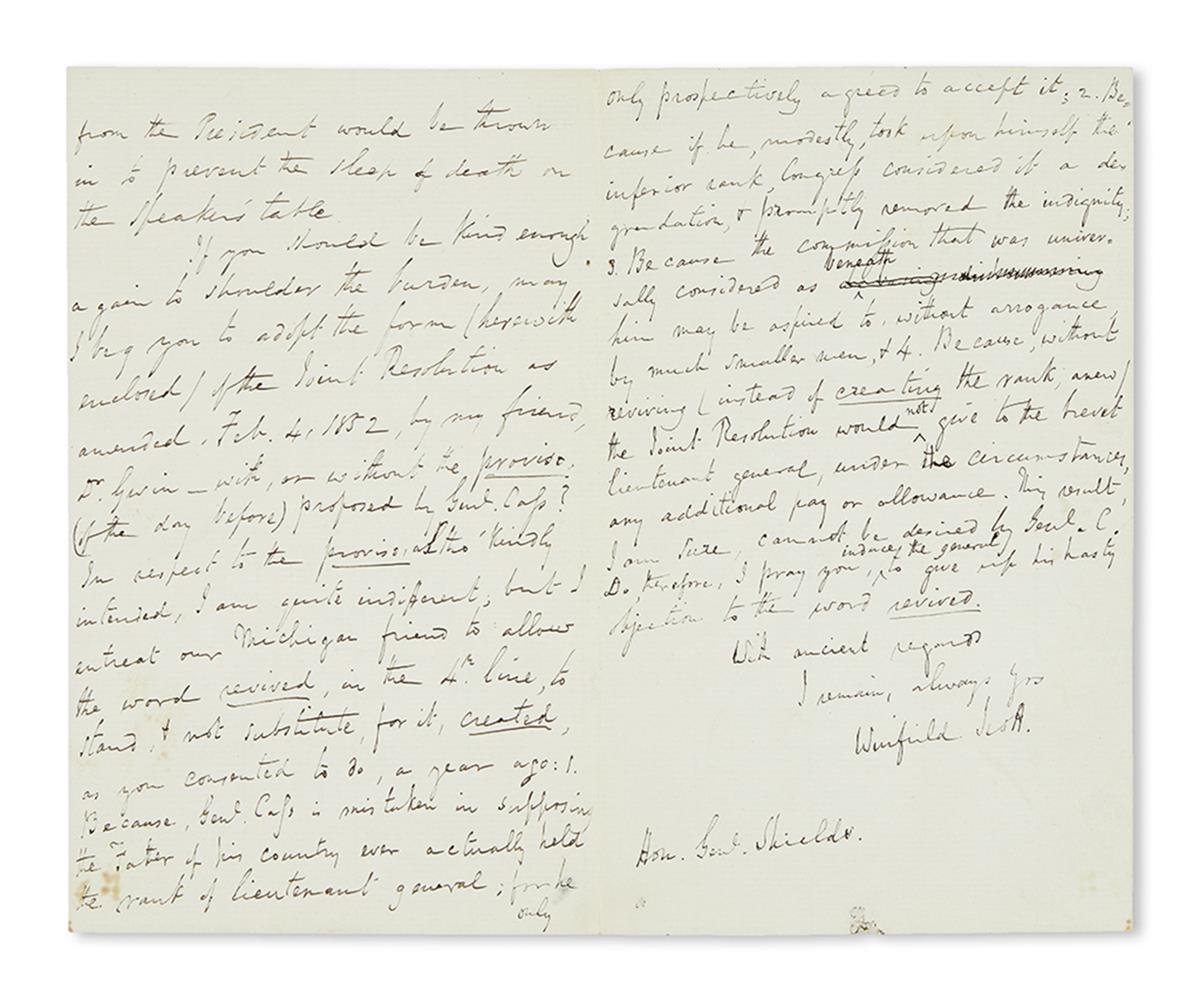 from the President would be thrown
in to prevent the sleep of death on
the speaker's table
If you should be kind enough
again to shoulder the burden, may
I beg you to adopt the form (herewith
enclosed) of the Joint Resolution as
amended, Feb. 4, 1852, by my friend,
Dr. Gwin — with, or without the proviso,
(of the day before) proposed by Genl. Cass?
In respect to the proviso, altho' kindly
intended, I am quite indifferent; but I
entreat our Michigan friend to allow
the word revived, in the 4th. line, to
stand, & not substitute, for it, created,
as you consented to do, a year ago: 1.
Because, Genl. Cass is mistaken in supposing
the Father of his country ever actually held
the rank of lieutenant general; for he
only
only prospectively agreed to accept it; 2. Be-
cause if he, modestly, took upon himself the
inferior rank, Congress considered it a de-
gradation, & promptly removed the indignity;
3. Because the commission that was univer-
sally considered as beneath
him may be aspired to, without arrogance,
by much smaller men, & 4. Because, without
reviving (instead of creating the rank, anew)
the Joint Resolution would not give to the brevet
lieutenant general, under the circumstances,
any additional pay or allowance. This result,
I am sure, cannot be desired by Genl. C.
Do, therefore, I pray you, induce the general, to give up his hasty
objection to the word revived.
With ancient regards
I remain, always yrs
Winfield Scott.
Hon. Genl. Shields.